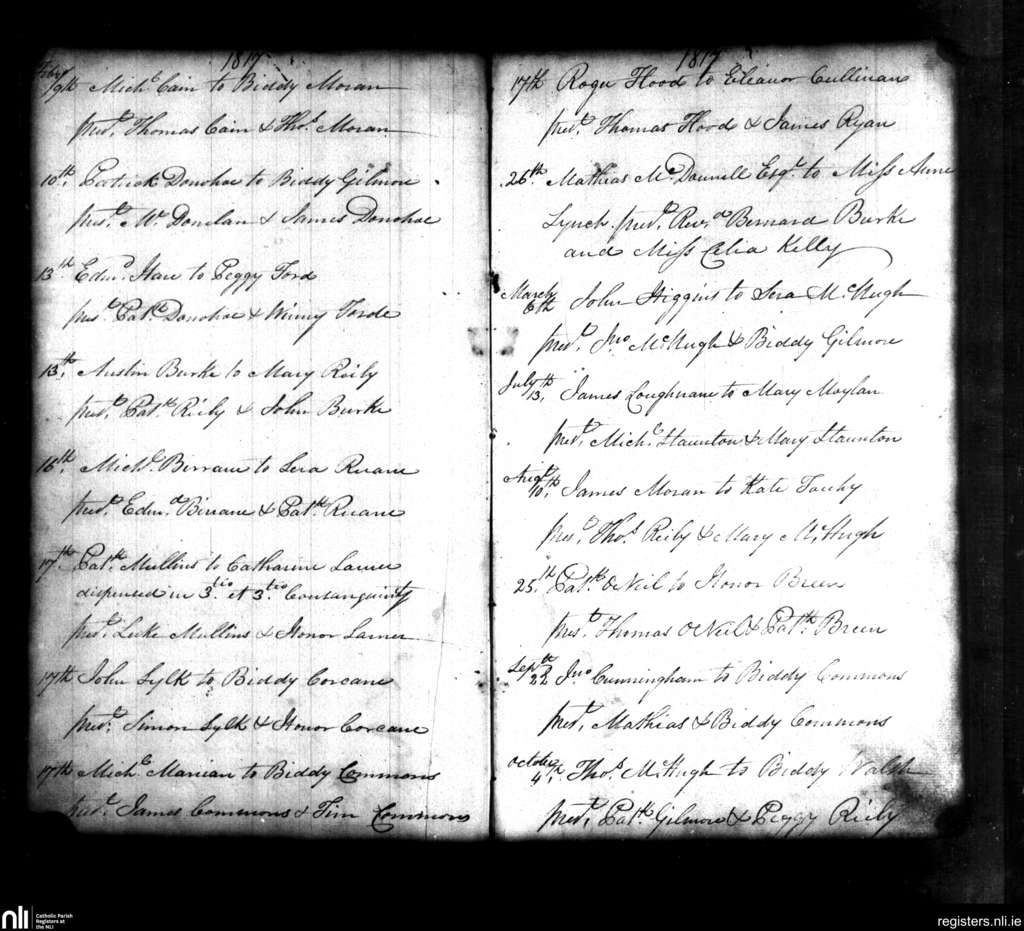 1817
Feby
9th Michl Cain to Biddy Moran
prest. Thomas Cain & Thos. Moran
10th. Patrick Donohoe to Biddy Gilmore
prest. Mr. Donelan & James Donohoe
13th. Edmd. Hare to Peggy Ford
prest. Patk. Donohoe & Winny Forde
13th. Austin Burke to Mary Reily
prest. Patk. Riely & John Burke
16th. Michl. Birrane to Sera Ruane
prest. Edmd. Birrane & Patk. Ruane
17th Patk. Mullins to Catharine Larner
dispensed in 3tio. et 3tio. Consanguinity
prest. Luke Mullins & Honor Larner
17th John Sylk to Biddy Corcane
prest. Simon Sylk & Honor Corcane
17th Michl. Manian to Biddy Commons
prest. James Commons & Tim Commons
1817
17th Roger Hood to Eleanor Cullinan
prest. Thomas Hood & James Ryan
26th. Mathias McDonnell Esqr. to Miss Anne
Lynch. prest. Revd. Bernard Burke
and Miss Celia Kelly
March
6th John Higgins to Sera McHugh
prest. Jno. McHugh & Biddy Gilmore
July
13th. James Loughnane to Mary Moylan
prest. Michl. Staunton & Mary Staunton
Augt.
10th. James Moran to Kate
prest. Thos. Reily & Mary McHugh
25th. Patk. O Neil to Honor Breen
prest. Thomas O Neil & Patk. Breen
Septr.
22d Jno. Cunningham to Biddy Commons
prest. Mathias & Biddy Commons
October
4th. Thos. McHugh to Biddy Walsh
prest. Patk. Gilmore & Peggy Riely
nli
Catholic Parish
Registers at
the NLI
registers.nli.ie